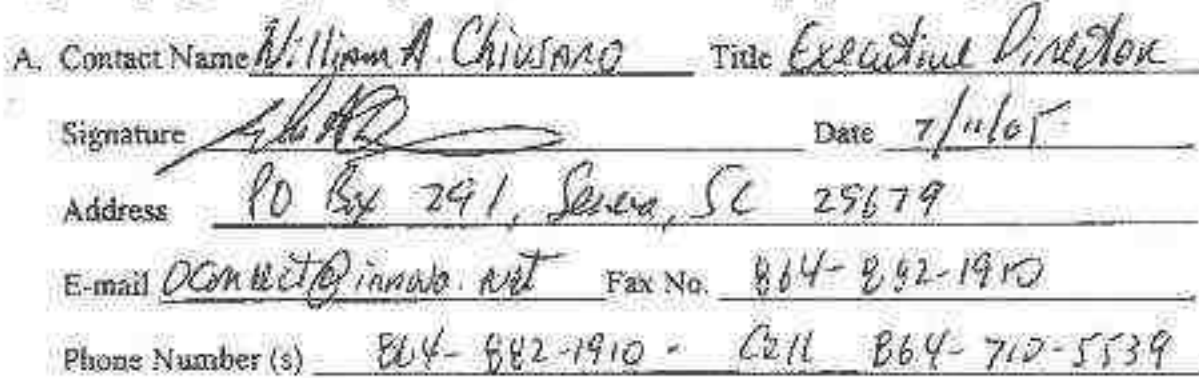 A. Contact Name William A. Chiusano Title Executive Director
Signature Date 7/11/05
Address PO Box 291, Seneca, SC 29679
E-mail Oconnect@innova.net Fax No. 864-882-1910
Phone Number (s) 864-882-1910 - Cell 864-710-5539